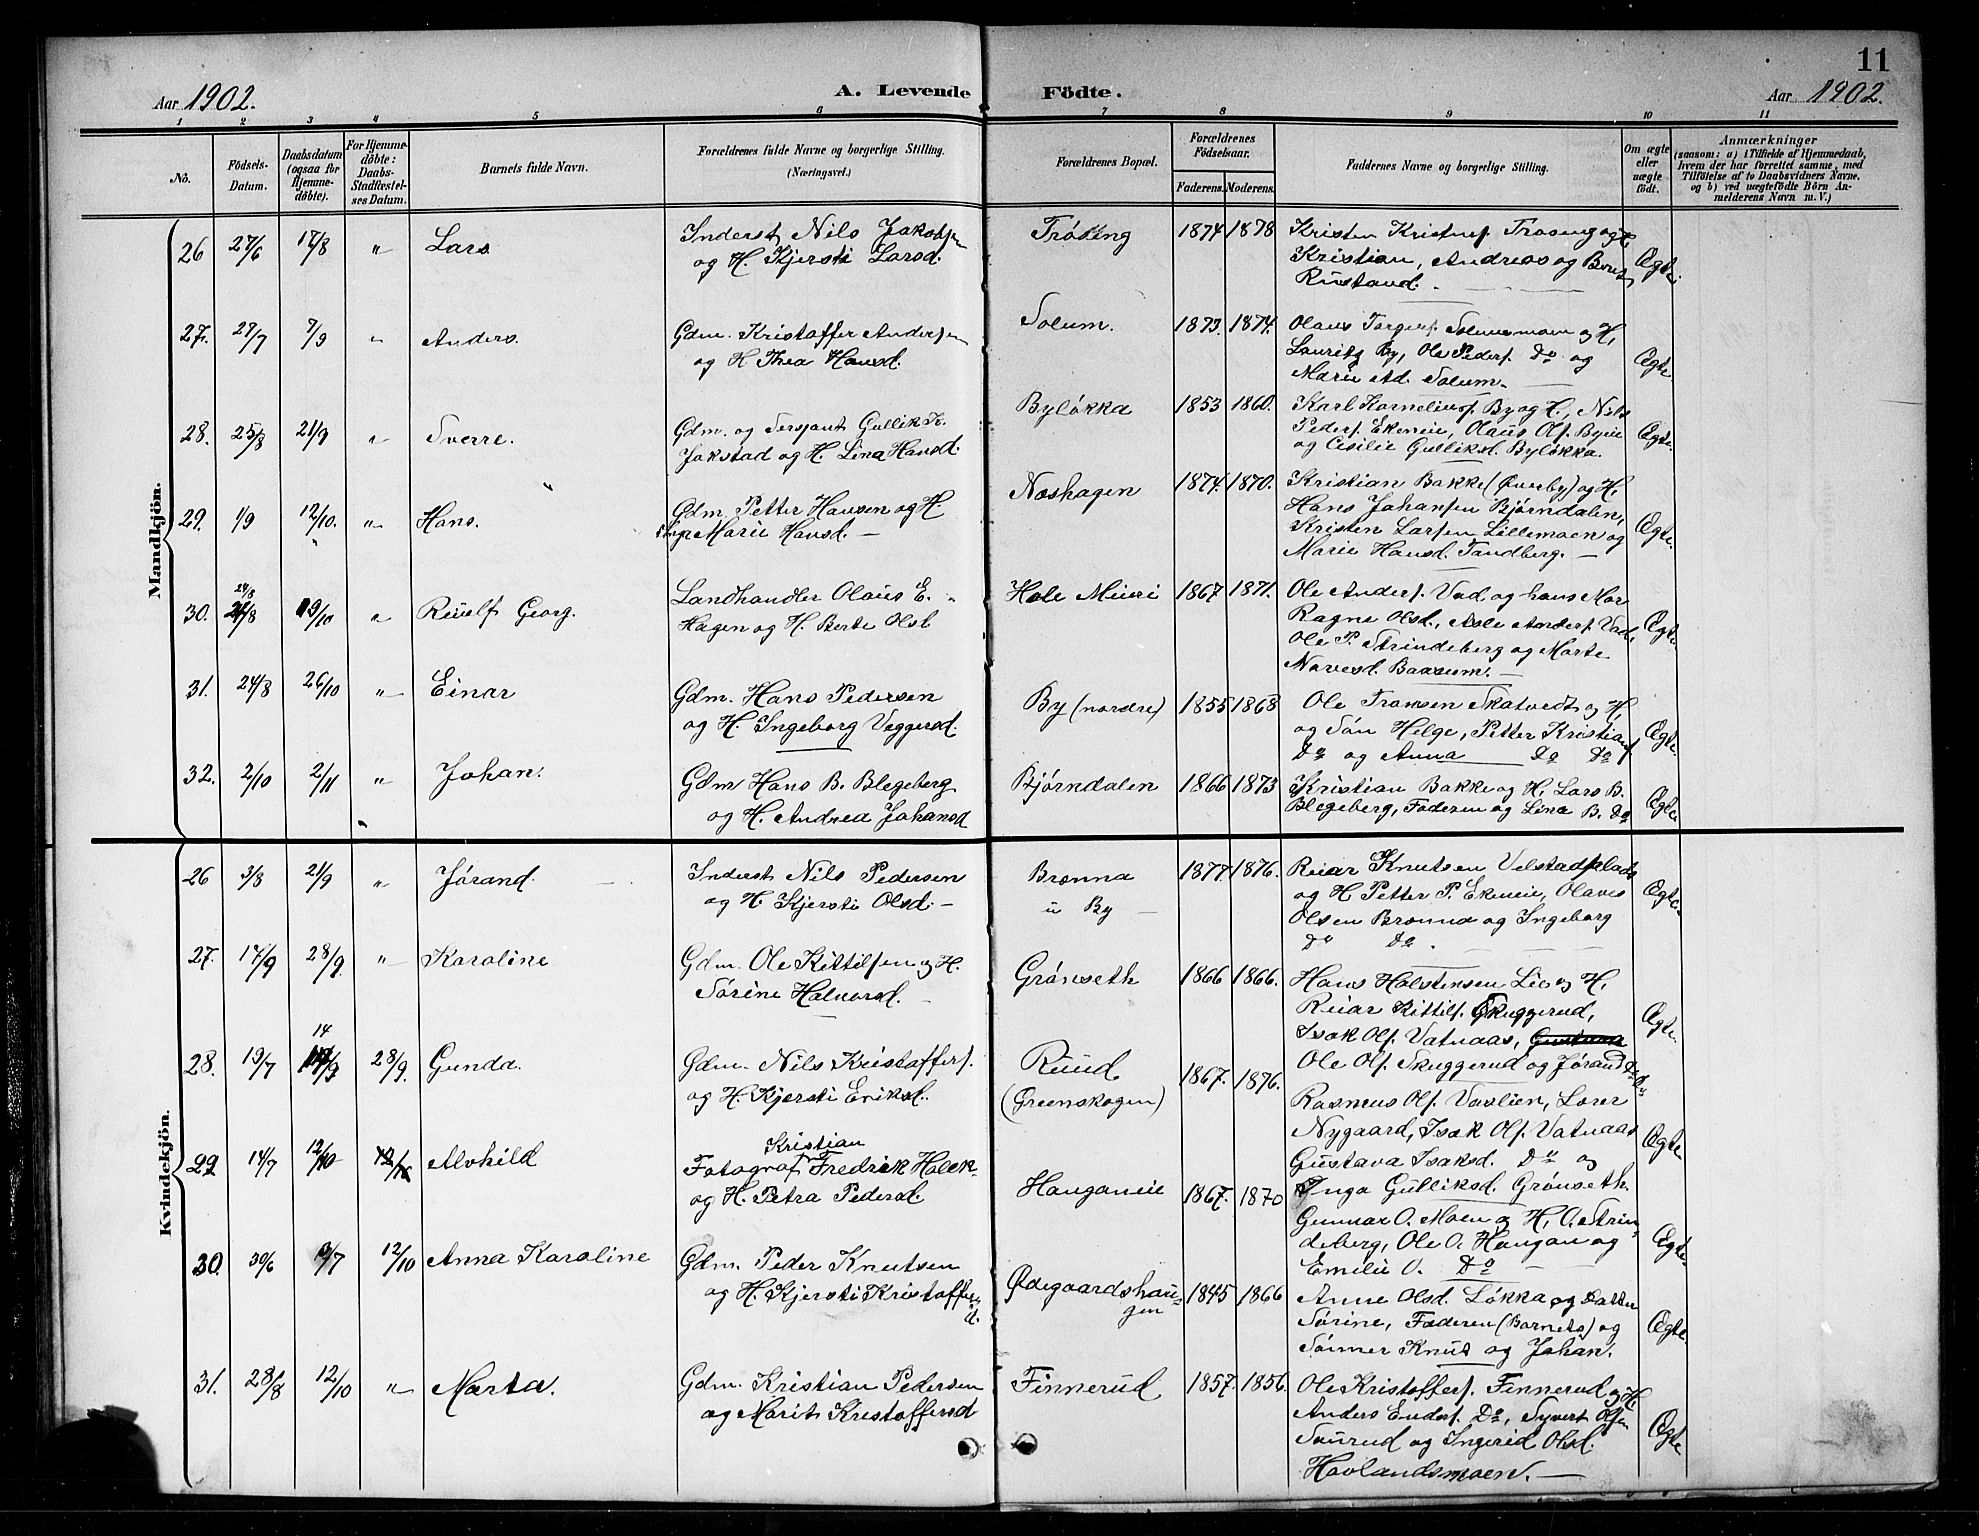 11
Aar 1902.
A. Levende Födte.
Aar 1902.
1 2 3 4 5 6 7 8 9 10 11
No.
Födsels-Datum.
Daabsdatum (ogsaa for Hjemmedöbte).
For Hjemmedöbte: Daabs-Stadfæstelses Datum.
Barnets fulde Navn.
Forældrenes fulde Navne og borgerlige Stilling. (Næringsvei.)
Forældrenes Bopæl.
Forældrenes Födselsaar.
Faderens. Moderens.
Faddernes Navne og borgerlige Stilling.
Om ægte eller uægte födt.
Anmærkninger
(saasom: a) i Tilfælde af Hjemmedaab, hvem der har forrettet samme, med Tilföielse af to Daabsvidners Navne, og b) ved uægtefödte Börn Anmelderens Navn m. V.)
Mandkjön.
26 27/6 17/8 " Lars
Inderst Nils Jakobsen
og H. Kjersti Larsd.
1874 1878
Kristian, Andreas og
Rustand.
Ægte
27. 27/7 7/9 " Anders.
Gdm. Kristoffer Andersen
og H. Thea Hansd.
Solum. 1873. 1874.
Lauritz By, Ole Peders. Do og
Marie Ad. Solum.
Ægte.
28. 25/8 21/9 " Sverre.
Gdm. og Sersjant Gullik K.
Jakstad og H. Lina Hansd.
Byløkka 1853 1860.
Karl Kornelius. By og H., Nils
Peders. Ekeneie, Olaus Ols. Byeie
og Cesilie Gulliksd. Byløkka.
Ægte.
29. 1/9 12/10. " Hans.
Gdm. Petter Hansen og H.
Inga Marie Hansd. —
Næshagen 1874. 1870.
Kristian Bakke (Øverby) og H.
Hans Johansen Bjørndalen,
Kristen Larsen Lillemoen og
Marie Hansd. Tandberg. —
Ægte.
30. 24/8 19/10 " Ruulf Georg.
Landhandler Olaus E.
Hagen og H. Berte Olsd.
Hole Mueri 1867 1871.
Ole Anders. Vad og hans Mor
Ragne Olsd., Asle Anders. Vad,
Ole P. Strindeberg og Marte
Ægte.
31. 24/8 26/10 " Einar
Gdm. Hans Pedersen
og H. Ingeborg Veggersd.
By (nordre) 1855 1868
Ole Fransen Skatvedt og H,
og Søn Helge, Petter Kristians.
Do og Anna Do Do
Ægte.
32. 2/10 2/11 " Johan.
Gdm Hans B. Blegeberg
og H. Andrea Johansd
Bjørndalen 1866 1873
Kristian Bakke og H, Lars B.
Blegeberg, Faderen og Lina B. Do
Ægte
Kvindekjön.
26 3/8 21/9 " Jørand.
Inderst Nils Pedersen
og H. Kjersti Olsd. —
Brænna
u By —
1877. 1876.
Reiar Knutsen Velstadplads
og H Petter P. Ekeneie, Olaves
Olsen Brænna og Ingeborg
Do Do.
Ægte.
27. 17/9 28/9. " Karoline
Gdm. Ole Kittilsen og H.
Sørine Halvorsd. —
Grønseth 1866 1866.
Hans Halstensen Lie og H,
Reiar Kittils. Skuggerud,
Isak Ols. Vatnaas,
Ole Ols. Skuggerud og Jørand Do
Ægte
28. 19/7 14/9 28/9. Gunda.
Gdm. Nils Kristoffers.
og H. Kjersti Eriksd.
Ruud
(Greenskogen)
1867. 1876.
Rasmus Ols. Vaslien, Lorer
Nygaard, Isak Ols. Vatnaas
Gustava Isaksd. Do og
Inga Gulliksd. Grønseth.
Ægte
29 14/7 12/10 Alvhild
Kristian
Fotograf Fredrik Holck
og H. Petra Pedersd.
Hauganeie 1867. 1870
Gunnar O. Moen og H, O. Strin-
deberg, Ole O. Haugan og
Emilie O. Do —
Ægte
30. 30/6 3/7 12/10 Anna Karoline
Gdm. Peder Knutsen
og H. Kjersti Kristoffers-
d.
Ødegaardshau-
gen
1845 1866
Anne Olsd. Løkka og Datter
Sørine, Faderen (Barnets) og
Sønner Knut og Johan.
Ægte.
31. 28/8 12/10 " Marta.
Gdm. Kristian Pedersen
og Marit Kristoffersd
Finnerud 1857. 1856.
Ole Kristoffers. Finnerud og H,
Anders Enders. Do, Syvert Olsen
Saurud og Ingerid Olsd.
Havlandsmoen. —
Ægte